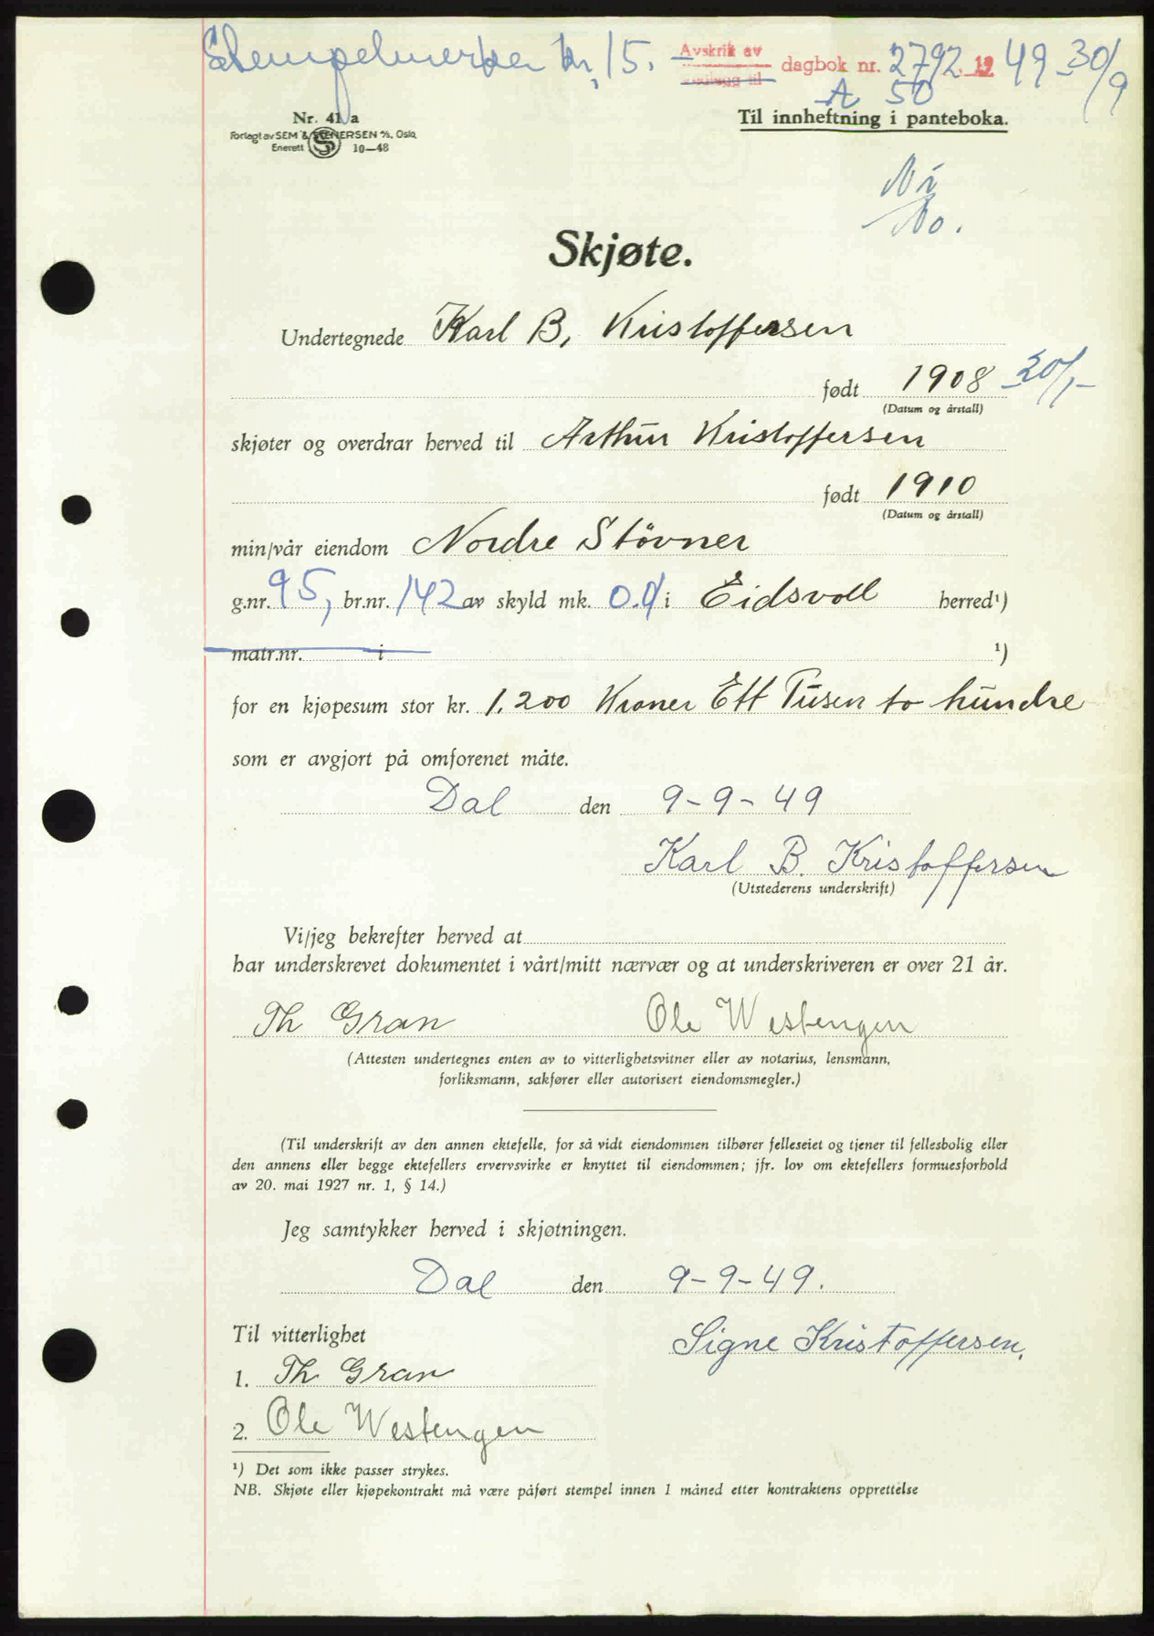 Stempelmerker kr. 15.-
Avskrift av dagbok nr. 2792. 19 49 30/9
A 50
Nr. 41 a
Forlagt av SEM & STENERSEN A/S, Oslo.
Enerett 10—48
Til innheftning i panteboka.
No.
Skjøte.
Undertegnede Karl B, Kristoffersen
født 1908 30/,-
(Datum og årstall)
skjøter og overdrar herved til Arthur Kristoffersen
født 1910
(Datum og årstall)
min/vår eiendom Nordre Stövner
g.nr. 95, br.nr. 142 av skyld mk. 0.01 i Eidsvoll herred¹)
matr.nr. i ¹)
for en kjøpesum stor kr. 1.200 Kroner Ett Tusen to hundre
som er avgjort på omforenet måte.
Dal den 9-9-49
Karl B. Kristoffersen
(Utstederens underskrift)
Vi/jeg bekrefter herved at
har underskrevet dokumentet i vårt/mitt nærvær og at underskriveren er over 21 år.
Th Gran Ole Westengen
(Attesten undertegnes enten av to vitterlighetsvitner eller av notarius, lensmann,
forliksmann, sakfører eller autorisert eiendomsmegler.)
(Til underskrift av den annen ektefelle, for så vidt eiendommen tilhører felleseiet og tjener til fellesbolig eller
den annens eller begge ektefellers ervervsvirke er knyttet til eiendommen; jfr. lov om ektefellers formuesforhold
av 20. mai 1927 nr. 1, § 14.)
Jeg samtykker herved i skjøtningen.
Dal den 9-9-49.
Til vitterlighet Signe Kristoffersen.
1. Th Gran
2. Ole Westengen
¹) Det som ikke passer strykes.
NB. Skjøte eller kjøpekontrakt må være påført stempel innen 1 måned etter kontraktens opprettelse